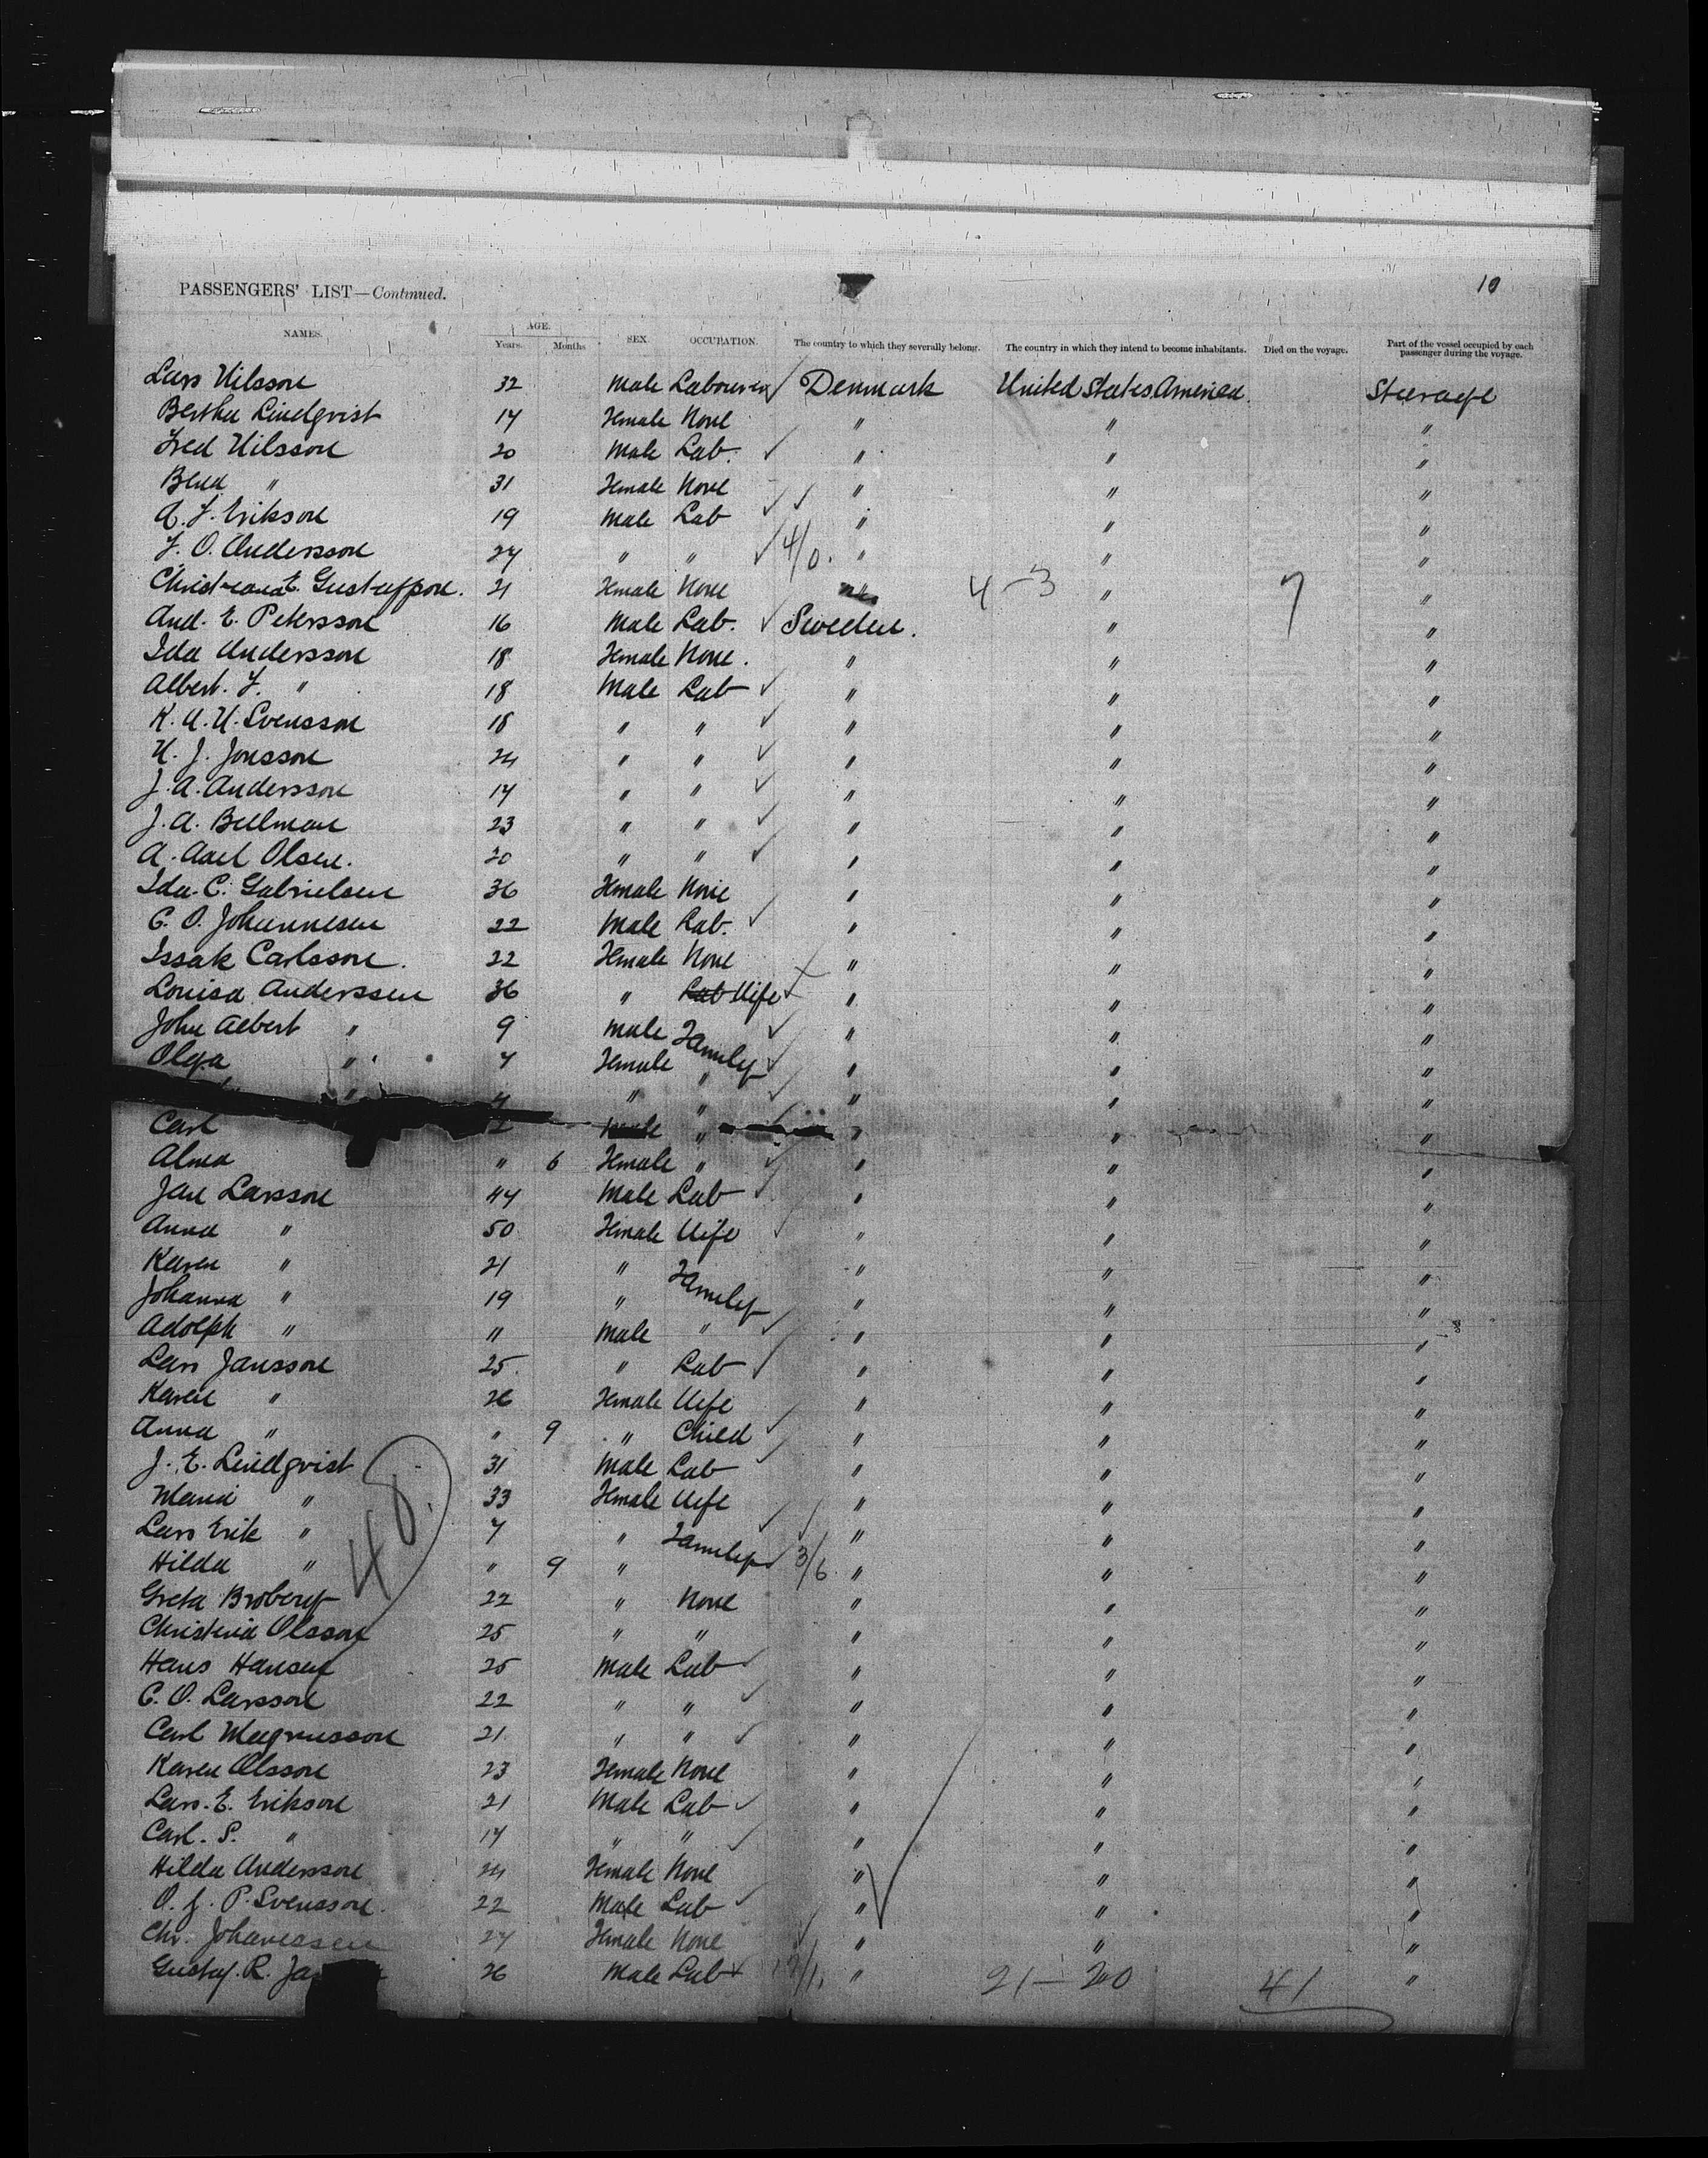 10
PASSENGERS' LIST—Continued.
NAMES. AGE. Years. Months SEX OCCUPATION. The country to which they severally belong. The country in which they intend to become inhabitants. Died on the voyage. Part of the vessel occupied by each passenger during the voyage.
Lars Nilsson 32 Male Labourer Denmark United States America Steerage
Bertha Lindqvist 17 Female None " " "
Fred Nilsson 20 Male Lab. " " "
" 31 Female None " " "
A. F. Erikson 19 Male Lab " " "
F. O. Andersson 27 " " 4/0. " " "
Gustafsson. 21 Female None 4-3 " 7 "
And. E. Petersson 16 Male Lab. Sweden. " "
Ida Andersson 18 Female None. " " "
Albert. F. " 18 Male Lab " " "
K. A. N. Svensson 18 " " " " "
N. J. Jonsson 24 " " " " "
J. A. Andersson 17 " " " " "
J. A. Bellman 23 " " " " "
A. Axel Olsen. 20 " " " " "
Ida. C. Gabrielsen 36 Female None " " "
C. O. Johannesen 22 Male Lab. " " "
Issak Carlsson. 22 Female None " " "
Louisa Anderssen 36 " Lab Wife " " "
John Albert " 9 Male Family " " "
Olga " 7 Female " " " "
" 4 " " " " "
Carl 2 Male " " " "
Alma " 6 Female " " " "
Jan Larsson 44 Male Lab " " "
Anna " 50 Female Wife " " "
Karen " 21 " Family " " "
Johanna " 19 " " " "
Adolph " 11 Male " " " "
Lars Jansson 25 " Lab " " "
Karen " 26 Female Wife " " "
Anna " " 9 " Child " " "
J. E. Lindqvist 31 Male Lab " " "
Maria " 33 Female Wife " " "
Lars Erik " 7 " Family " " "
Hilda " " 9 " 3/6 " " "
48.
Greta Broberg 22 " None " " "
Christina Olsson 25 " " " " "
Hans Hansen 25 Male Lab " " "
C. O. Larsson 22 " " " " "
Carl Magnusson 21 " " " " "
Karen Olsson 23 Female None " " "
Lars. E. Erikson 21 Male Lab " " "
Carl. S. " 17 " " " " "
Hilda Andersson 24 Female None " " "
O. J. P. Svensson. 22 Male Lab " " "
Chr. Johanessen 27 Female None " " "
Gustaf. R. 26 Male Lab " 21-20 41 "